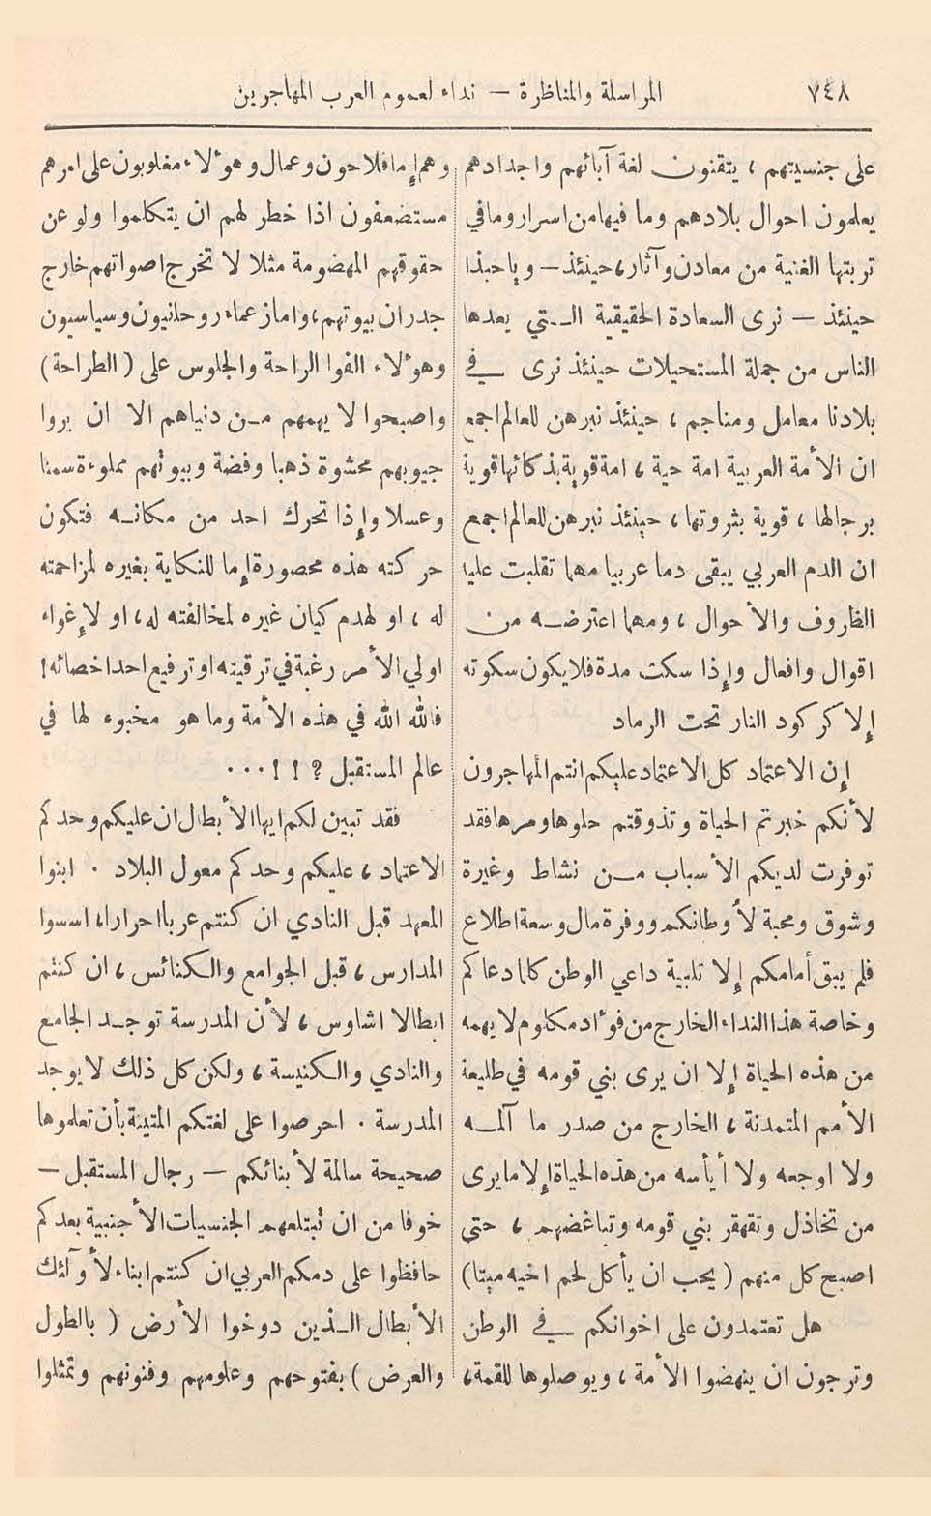 ٧٤٨
المراسلة والمناظرة — نداء لعموم العرب المهاجرين
على جنسيتهم ، يتقنون لغة آبائهم واجدادهم
يعلمون احوال بلادهم وما فيها من اسرار وما في
تربتها الغنية من معادن وآثار ، حينئذ — ويا حبذا
حينئذ — نرى السعادة الحقيقية التي يعدها
الناس من جملة المستحيلات حينئذ نرى في
بلادنا معامل ومناجم ، حينئذ نبرهن للعالم اجمع
ان الأمة العربية امة حية ، امة قوية بذكائها قوية
برجالها ، قوية بثروتها ، حينئذ نبرهن للعالم اجمع
ان الدم العربي يبقى دما عربيا مهما تقلبت عليه
الظروف والأحوال ، ومهما اعترضه من
اقوال وافعال وإذا سكت مدة فلا يكون سكوته
إلا كركود النار تحت الرماد
إن الاعتماد كل الاعتماد عليكم انتم المهاجرون
لأنكم خبرتم الحياة وتذوقتم حلوها ومرها فقد
توفرت لديكم الأسباب من نشاط وغيرة
وشوق ومحبة لأوطانكم ووفرة مال وسعة اطلاع
فلم يبق أمامكم إلا تلبية داعي الوطن كلما دعاكم
وخاصة هذا النداء الخارج من فؤاد مكلوم لا يهمه
من هذه الحياة إلا ان يرى بني قومه في طليعة
الأمم المتمدنة ، الخارج من صدر ما آلمه
ولا اوجعه ولا أيأسه من هذه الحياة إلا ما يرى
من تخاذل وتقهقر بني قومه وتباغضهم ، حتى
اصبح كل منهم ( يحب ان يأكل لحم اخيه ميتا )
هل تعتمدون على اخوانكم في الوطن
وترجون ان ينهضوا الأمة ، ويوصلوها للقمة ،
وهم إما فلاحون وعمال وهؤلاء مغلوبون على امرهم
مستضعفون اذا خطر لهم ان يتكلموا ولو عن
حقوقهم المهضومة مثلا لا تخرج اصواتهم خارج
جدران بيوتهم ، واما زعماء روحانيون وسياسيون
وهؤلاء الفوا الراحة والجلوس على ( الطراحة )
واصبحوا لا يهمهم من دنياهم الا ان يروا
جيوبهم محشوة ذهبا وفضة وبيوتهم مملوءة سمنا
وعسلا وإذا تحرك احد من مكانه فتكون
حركته هذه محصورة إما للنكاية بغيره لمزاحمته
له ، او لهدم كيان غيره لمخالفته له ، او لإغواء
اولي الأمر رغبة في ترقيته او ترفيع احد اخصائه !
فالله الله في هذه الأمة وما هو مخبوء لها في
عالم المستقبل ? ! ! . . .
فقد تبين لكم ايها الأبطال ان عليكم وحدكم
الاعتماد ، عليكم وحدكم معول البلاد . ابنوا
المعهد قبل النادي ان كنتم عربا احرارا ، اسسوا
المدارس ، قبل الجوامع والكنائس ، ان كنتم
ابطالا اشاوس ، لأن المدرسة توجد الجامع
والنادي والكنيسة ، ولكن كل ذلك لا يوجد
المدرسة . احرصوا على لغتكم المتينة بأن تعلموها
صحيحة سالمة لأبنائكم — رجال المستقبل —
خوفا من ان تبتلعهم الجنسيات الأجنبية بعدكم
حافظوا على دمكم العربي ان كنتم ابناء لأولئك
الأبطال الذين دوخوا الأرض ( بالطول
والعرض ) بفتوحهم وعلومهم وفنونهم وتمثلوا